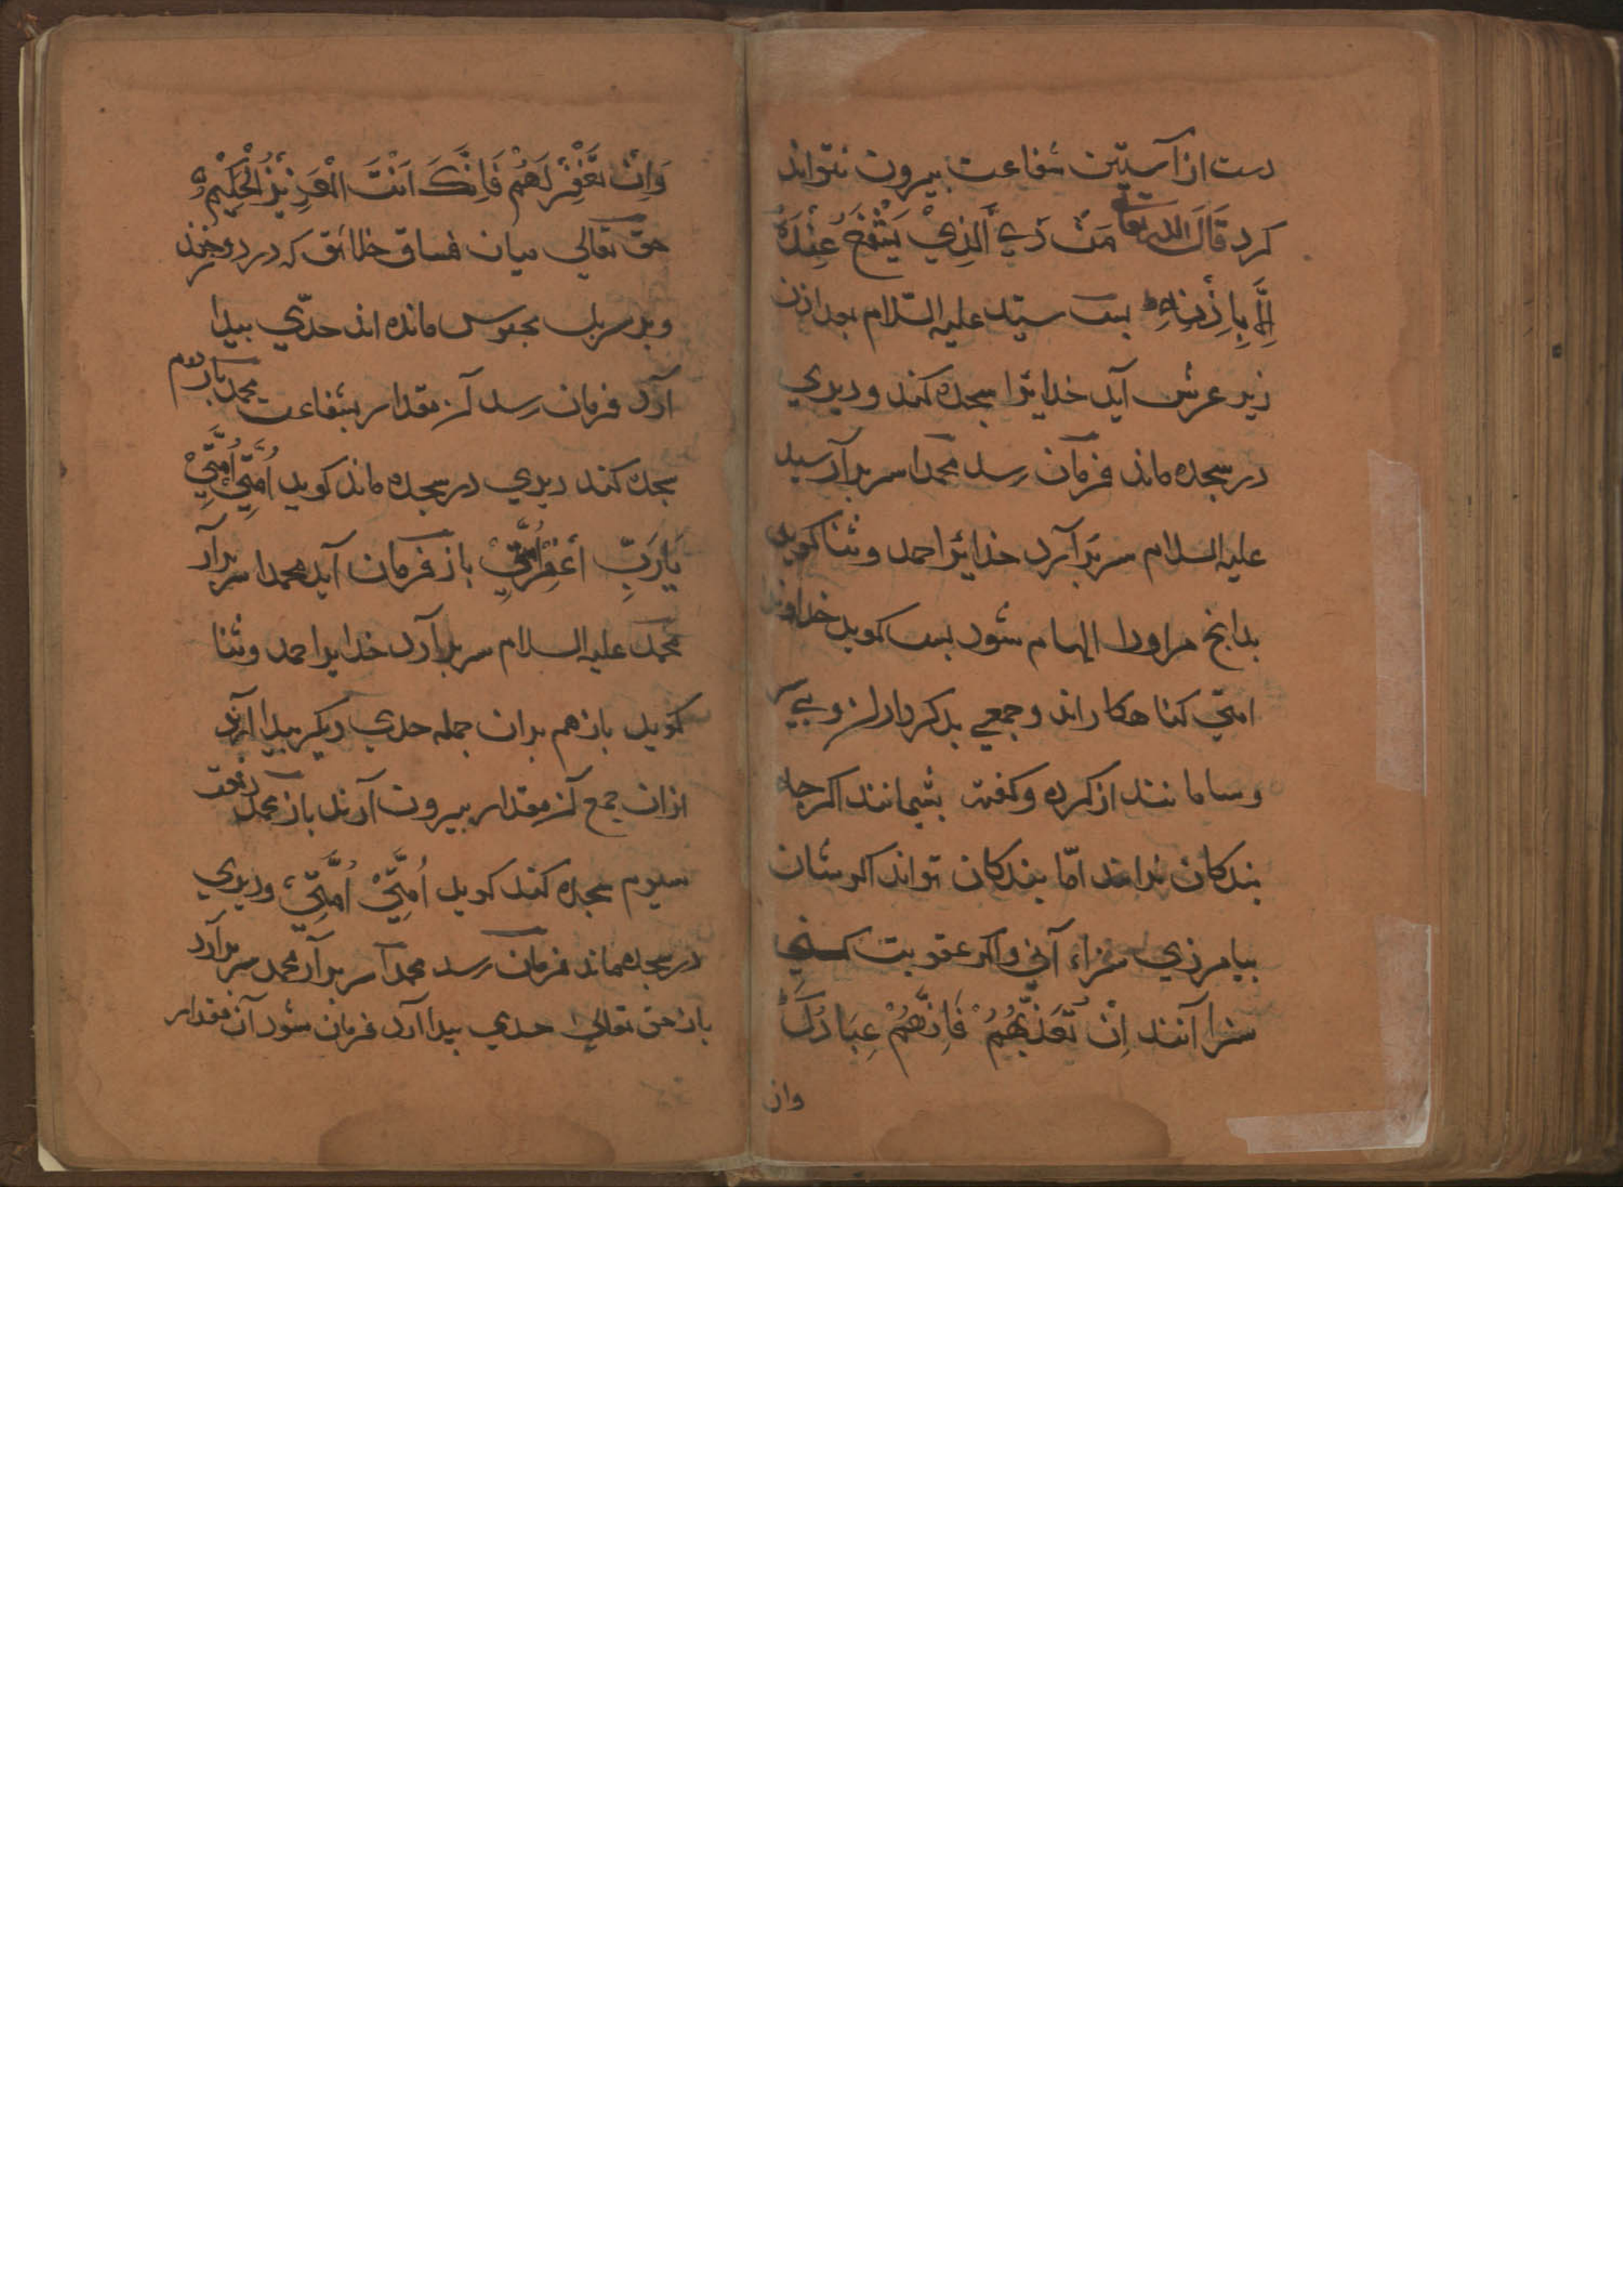 دست از آستین شفاعت بیرون نتواند
کرد قَالَ الله تعالی مَنْ ذَي الَّذِيْ يَشْفَعُ عِنْدَهُ
اِلَّا بِاِذْنِهٖ ط پس سیّد علیه السّلام بعد اذن
زیر عرش آید خدایرا سجده کند و دیری
در سجده ماند فرمان رسد محمدا سر برآر سید
علیه السلام سر برآرد خدایرا حمد و ثنا کوید
بدانچ مر اورا الهام شود پس کوید خداوندا
امتی کناهکاراند و جمعی بدکرداران و بی سر
و سامانند از کرده و کفته پشیمانند اکرچه
بندکان بدانند امّا بندکان تواند اکرشان
بیامرزی سزاء آنی و اکر عقوبت کنی
سزا آنند اِنْ تُعَذِّبْهُمْ فَاِنَّهُمْ عِبَادُكَ
وان
وَاِنْ تَغْفِرْ لَهُمْ فَاِنَّكَ اَنْتَ الْعَزِيْزُ الْحَكِيْمُ
حق تعالی میان فساق خلائق که در دوزخند
و بر سر پل محبوس مانده اند حدّی پیدا
آرد فرمان رسد آن مقدار بشفاعت محمد بار دوم
سجده کند دیری در سجده ماند کوید اُمَّتِيْ اُمَّتِيْ
يَارَبِّ اغْفِرْ اُمَّتِيْ باز فرمان آید محمدا سر برآر
محمد علیه السلام سر برآرد خدایرا حمد و ثنا
کوید باز هم بران جمله حدی دیکر پیدا آرند
ازان جمع آن مقدار بیرون آرند باز محمد دفعت
سیوم سجده کند کوید اُمَّتِيْ اُمَّتِيْ و دیری
در سجده ماند فرمان رسد محمدا سر برآر محمد سر برآرد
باز حق تعالی حدی پیدا آرد فرمان شود آن مقدار